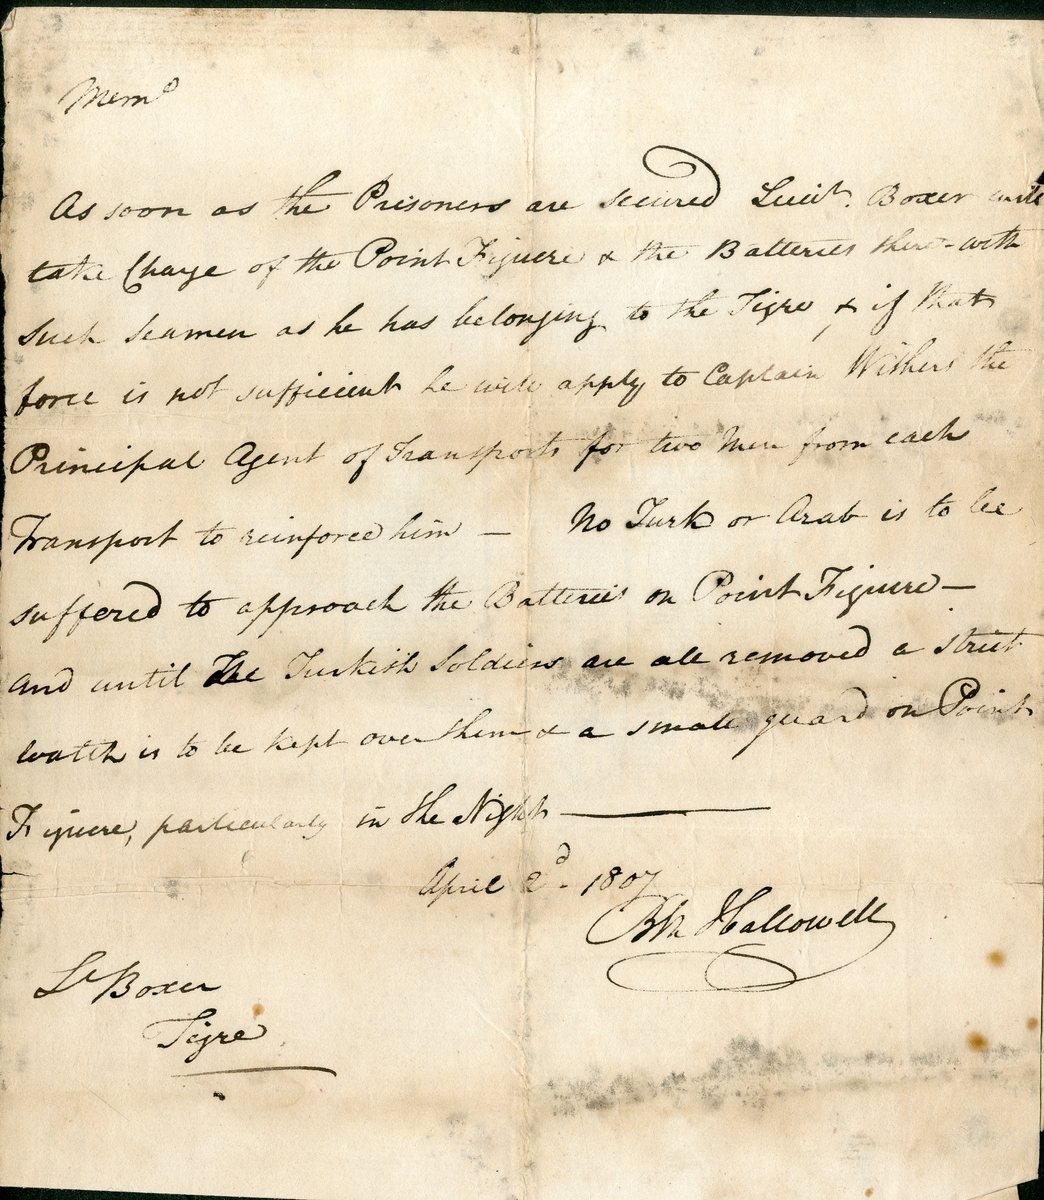 Memo
As soon as the Prisoners are secured Lieut. Boxer will
take Charge of the Point Figuere & the Batteries there - with
such seamen as he has belonging to the Tigre, & if that
force is not sufficient he will apply to Captain Withers the
Principal Agent of Transports for two Men from each
Transport to reinforce him — No Turk or Arab is to be
suffered to approach the Batteries on Point Figuere —
and until the Turkish Soldiers are all removed a strict
watch is to be kept over them & a small guard on Point
Figuere, particularly in the Night —
April 2d. 1807
Bn Hallowell
Lt Boxer
Tigre